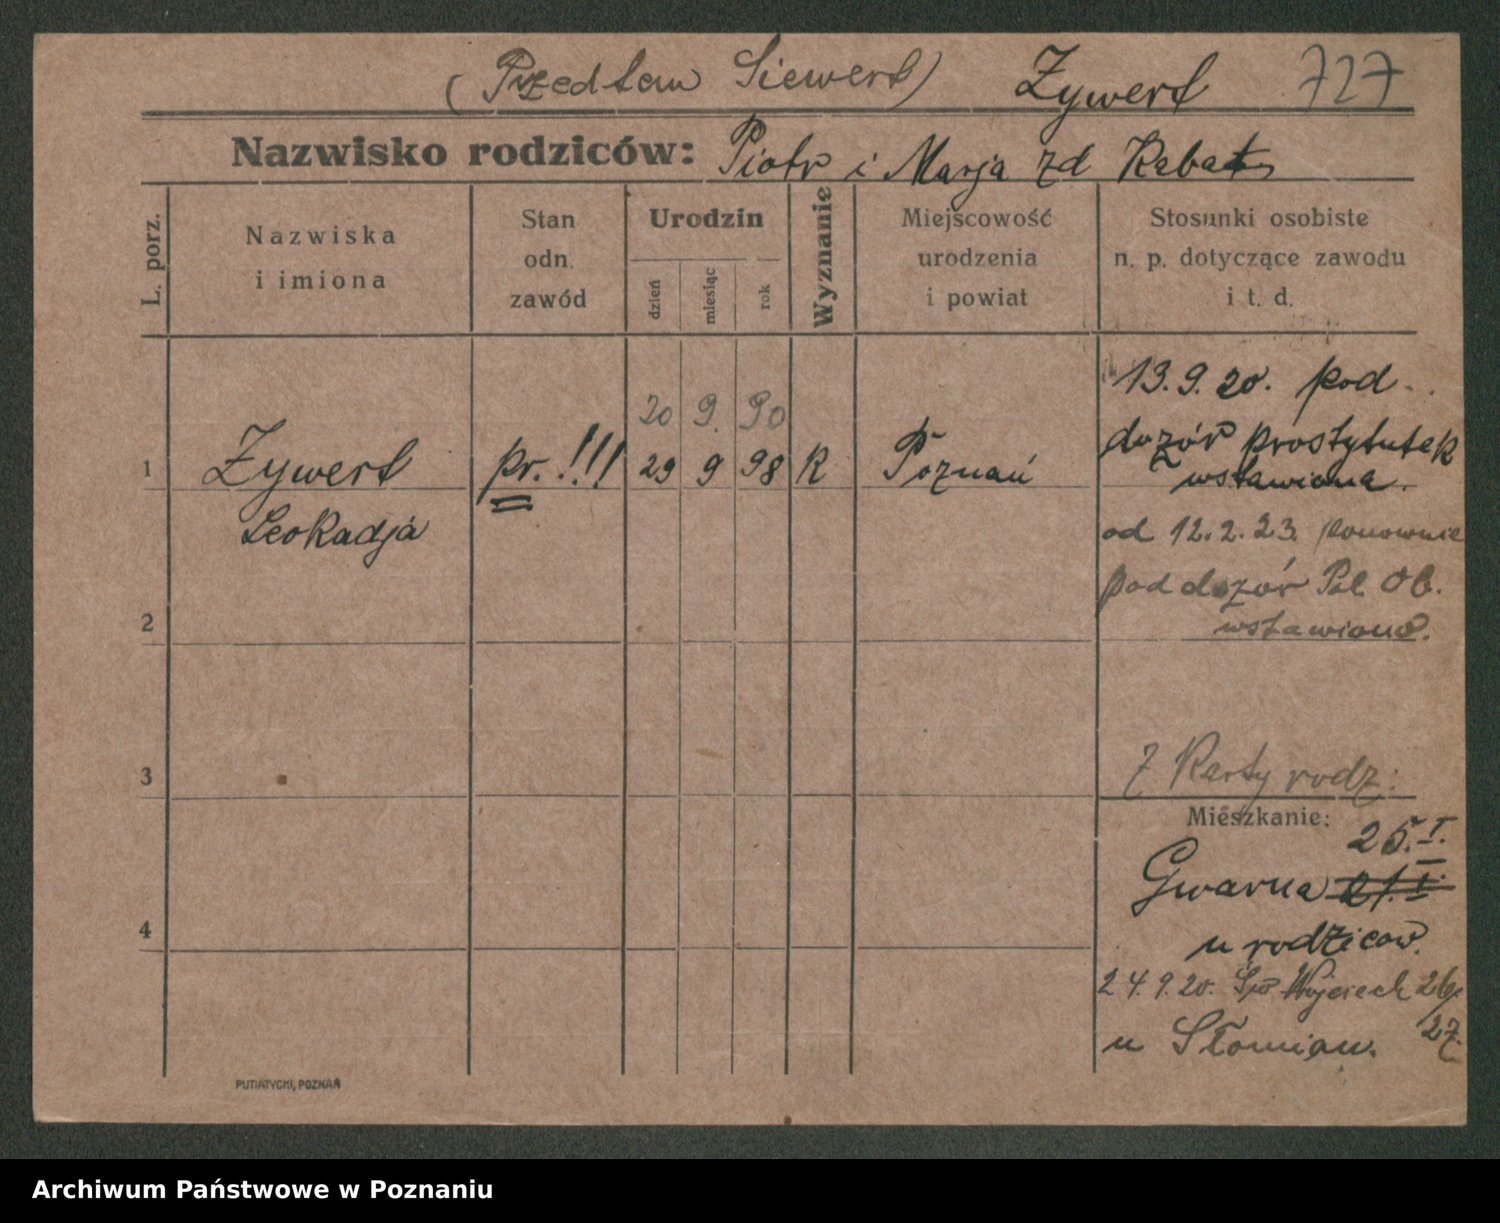 (Przedtem Siewert) Zywert 727
Nazwisko rodziców: Piotr i Marja zd
L. porz.
Nazwiska
i imiona
Stan
odn.
zawód
Urodzin
dzień
miesiąc
rok
Wyznanie
Miejscowość
urodzenia
i powiat
Stosunki osobiste
n. p. dotyczące zawodu
i t. d.
13.9.20. pod
20 9. 90
dozór prostytutek
1 Zywert pr. !!! 29 9 98 K Poznań
wstawiona.
Leokadja
od 12.2.23. ponownie
pod dozór Pol. Ob.
2
wstawiono.
3
Z Karty rodz:
Mieszkanie:
25. I.
Gwarna 21. I.
4
u rodziców.
24.9.20. Św Wojciech 26/
27.
u Słomian.
PUTIATYCKI, POZNAŃ
Archiwum Państwowe w Poznaniu